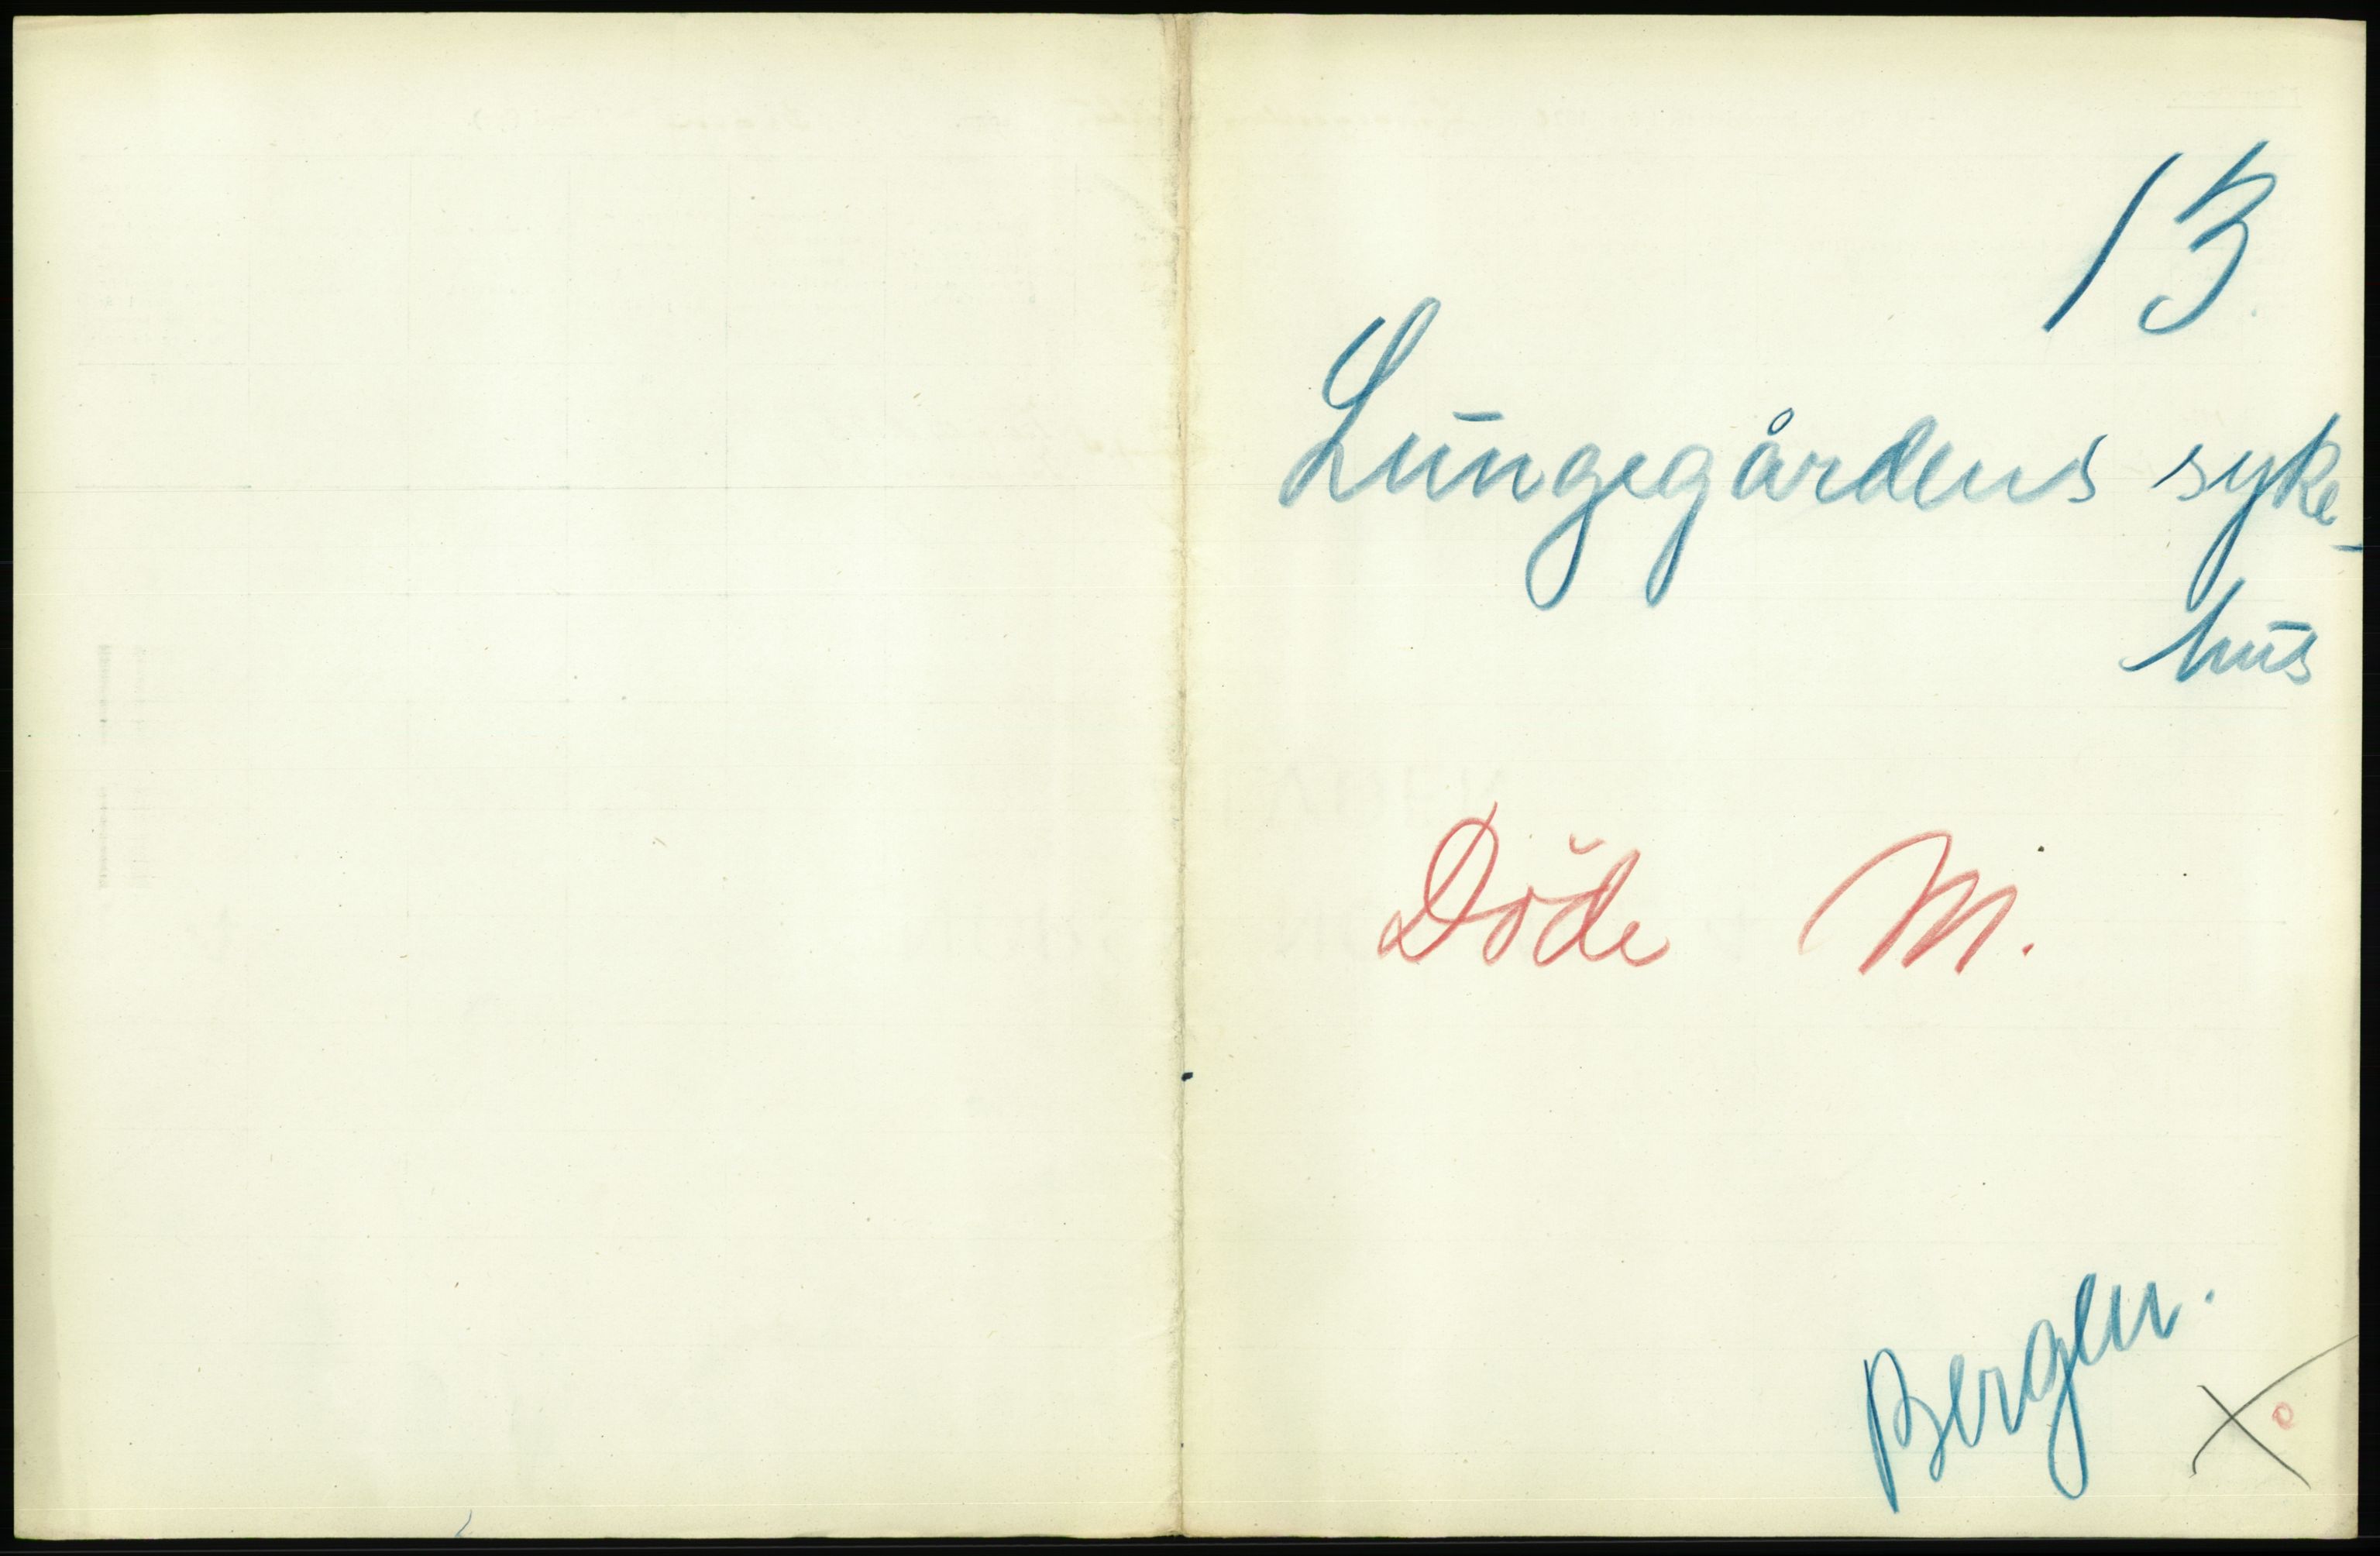 13.
Lungegårdens syke-
hus
Döde M.
Bergen.